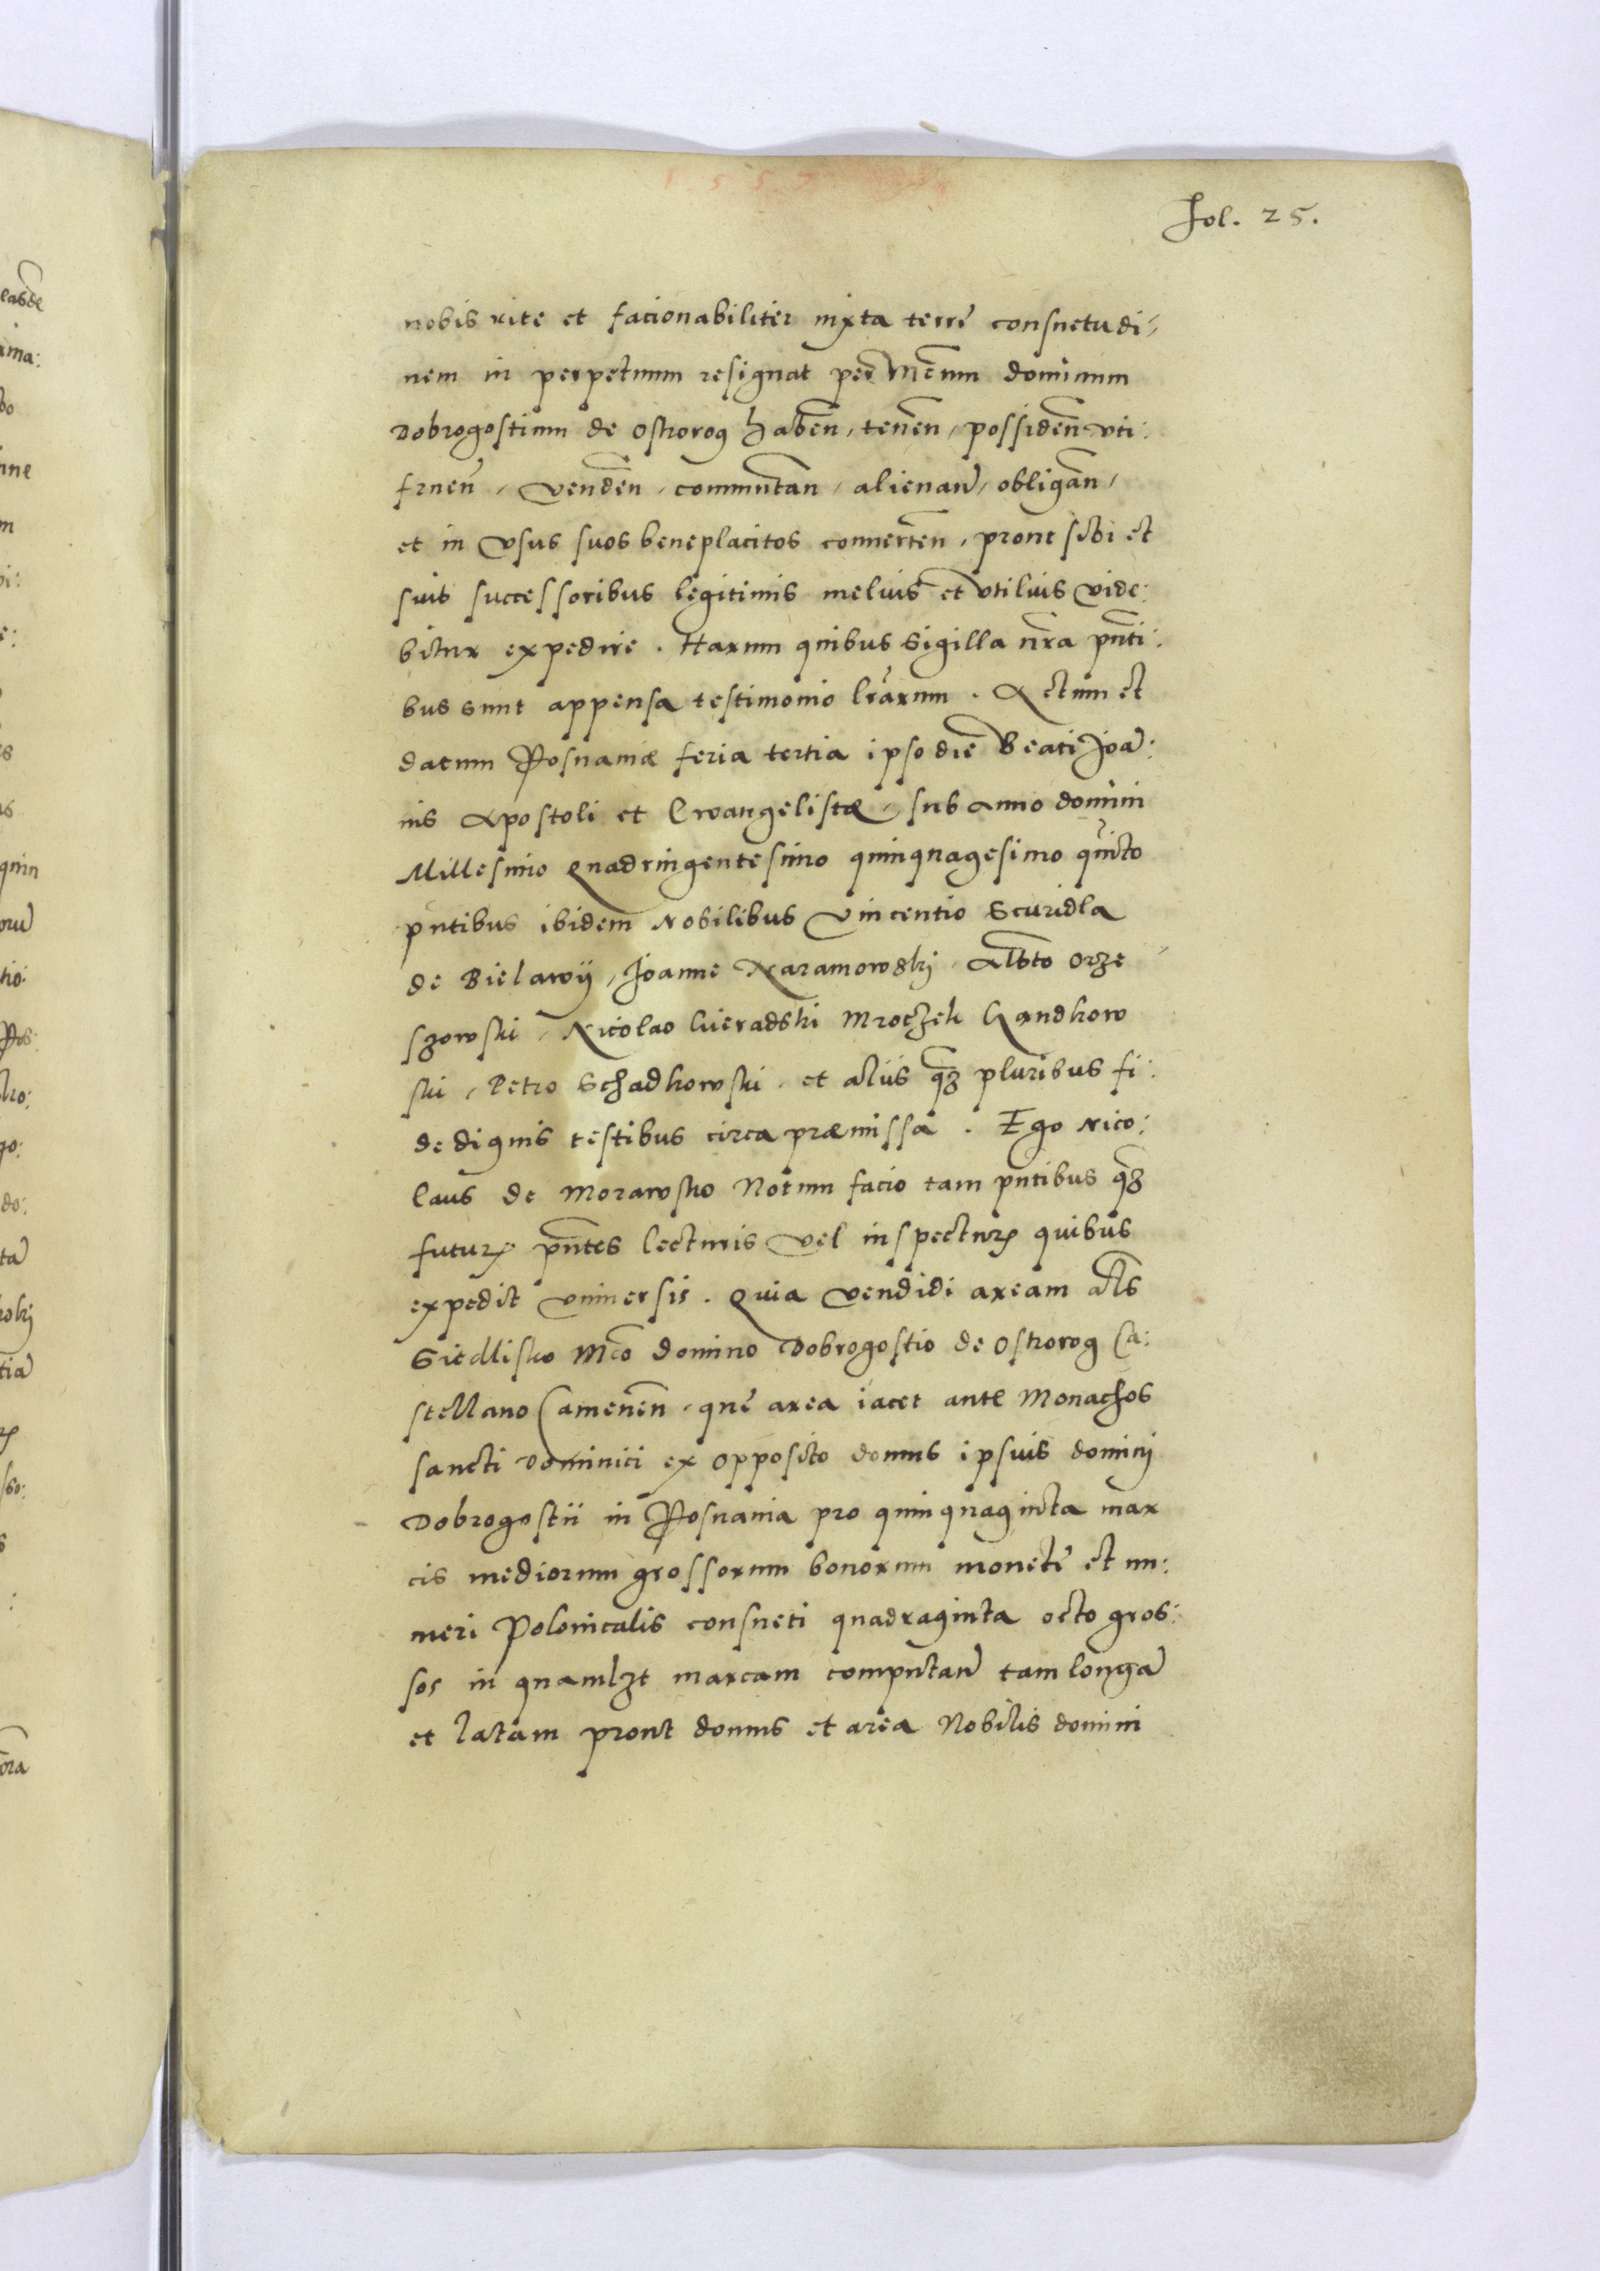 Fol. 25.
nobis rite et facionabiliter iuxta terrę consuetudi-
nem in perpetuum resignat per Mcum dominum
Dobrogostium de Ostrorog haben̄, tenen̄, possiden̄ vti:
fruen̄, venden̄, commutan̄, alienan̄, obligan̄,
et in vsus suos beneplacitos conuerten̄, prout sibi et
suis successoribus legitimis melius et vtilius vide:
bitur expedire. Harum quibus sigilla nr̄a pn̄ti:
bus sunt appensa testimonio lr̄arum. Actum et
datum Posnaniæ feria tertia ipso die Beati Joan̄:
nis Apostoli et Ewangelistæ, sub anno domini
Millesimo Quadringentesimo quinquagesimo quinto
pntibus ibidem Nobilibus Vincentio Scuridla
de Bielawy, Joanne Naramowski, Albto Orze
szowski, Nicolao Lieradski Mroczek Gandkow
ski, Petro Schadkowski, et aliis qz pluribus fi:
de dignis testibus circa præmissa. Ego Nico:
laus de Morawsko Notum facio tam pntibus qz
futur pn̄tes lecturis vel inspectur quibus
expedit vniuersis. Quia vendidi aream al̄s
Siedlisko Mco domino Dobrogostio de Ostrorog Ca:
stellano Camenen̄, quę area iacet ante Monachos
sancti Dominici ex opposito domus ipsius dominj
Dobrogostii in Posnania pro quinquaginta mar
cis mediorum grossorum bonorum monetę et nu:
meri Polonicalis consueti quadraginta octo gros:
sos in quamlzt marcam computan̄ tam longā
et latam prout domus et area Nobilis domini